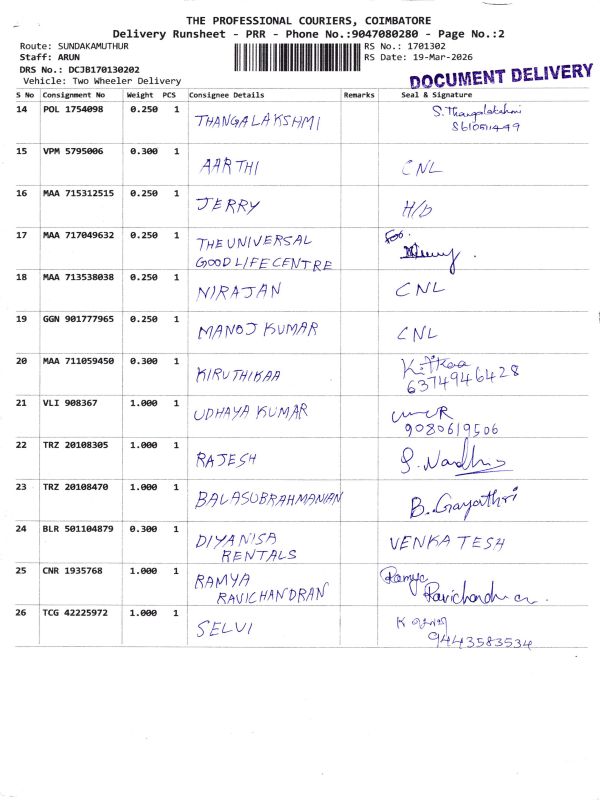 THE PROFESSIONAL COURIERS, COIMBATORE
Delivery Runsheet - PRR - Phone No.:9047080280 - Page No.:2
Route: SUNDAKAMUTHUR RS No.: 1701302
Staff: ARUN RS Date: 19-Mar-2026
DRS No.: DCJB170130202
Vehicle: Two Wheeler Delivery
DOCUMENT DELIVERY
S No Consignment No Weight PCS Consignee Details Remarks Seal & Signature
14 POL 1754098 0.250 1 THANGALAKSHMI S.Thangalakshmi
15 VPM 5795006 0.300 1 AARTHI CNL
16 MAA 715312515 0.250 1 JERRY H/b
17 MAA 717049632 0.250 1 THE UNIVERSAL For.
GOOD LIFE CENTRE
18 MAA 713538038 0.250 1 NIRAJAN CNL
19 GGN 901777965 0.250 1 MANOJ KUMAR CNL
20 MAA 711059450 0.300 1 KIRUTHIKAA
6374946428
21 VLI 908367 1.000 1 UDHAYA KUMAR
9080619506
22 TRZ 20108305 1.000 1 RAJESH
23 TRZ 20108470 1.000 1 BALASUBRAHMANIAN B.Gayathri
24 BLR 501104879 0.300 1 DIYANISA VENKATESH
RENTALS
25 CNR 1935768 1.000 1 RAMYA Ramya
RAVICHANDRAN Ravichandran.
26 TCG 42225972 1.000 1 SELVI K
9443583534